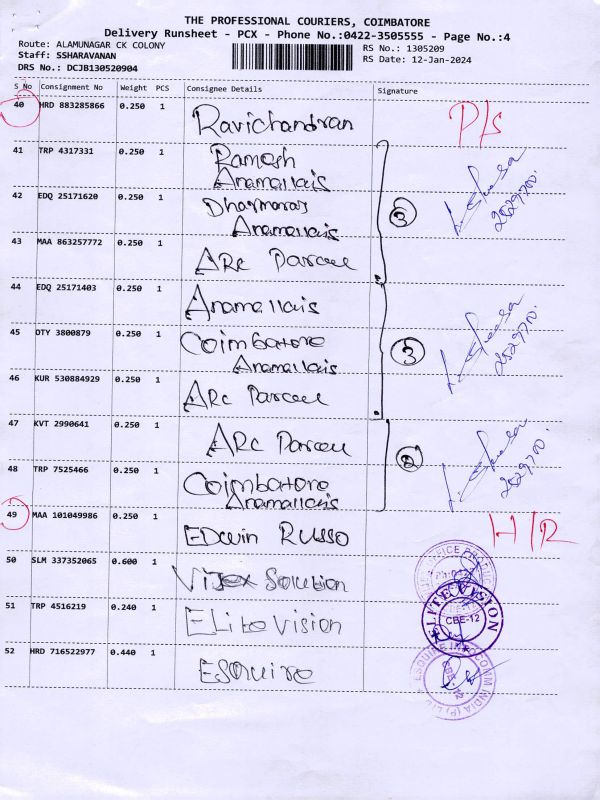 THE PROFESSIONAL COURIERS, COIMBATORE
Delivery Runsheet - PCX - Phone No.:0422-3505555 - Page No.:4
Route: ALAMUNAGAR CK COLONY
RS No.: 1305209
Staff: SSHARAVANAN
RS Date: 12-Jan-2024
DRS No.: DCJB130520904
S No Consignment No Weight PCS Consignee Details Signature
40 HRD 883285866 0.250 1 Ravichandran P/S
41 TRP 4317331 0.250 1 Ramesh
Anamallais
42 EDQ 25171620 0.250 1 Dharmaraj
Anamallais
3
2529700.
43 MAA 863257772 0.250 1 ARC Parcel
44 EDQ 25171403 0.250 1 Anamallais
45 OTY 3800879 0.250 1 Coimbatore
Anamallais
3
46 KUR 530884929 0.250 1 ARC Parcel
47 KVT 2990641 0.250 1 ARC Parcel
2
48 TRP 7525466 0.250 1 Coimbatore
Anamallais
49 MAA 101049986 0.250 1 Edwin Russo H/R
50 SLM 337352065 0.600 1 Vijex Solution
51 TRP 4516219 0.240 1 Elite Vision
ELITE VISION
CBE-12
52 HRD 716522977 0.440 1 Esquire